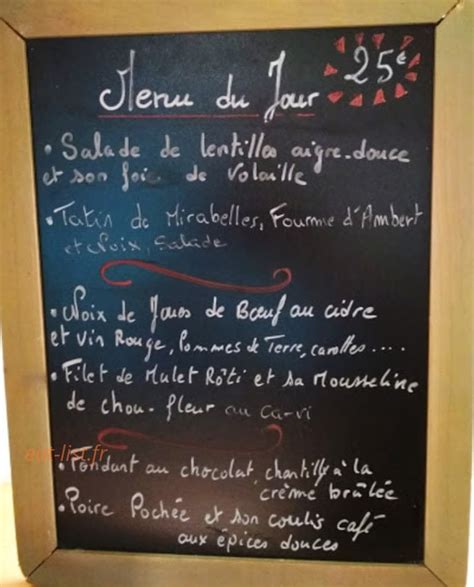 Menu du Jour
25€
• Salade de lentilles aigre-douce
et son foie de Volaille
• Tatin de Mirabelles, Fourme d'Ambert
et Noix, Salade
• Noix de Joues de Bœuf au cidre
et vin Rouge, Pommes de Terre, carottes....
• Filet de Mulet Rôti et sa Mousseline
de chou-fleur au ca-vi
• Fondant au chocolat, chantilly à la
crème brûlée
• Poire Pochée et son coulis café
aux épices douces